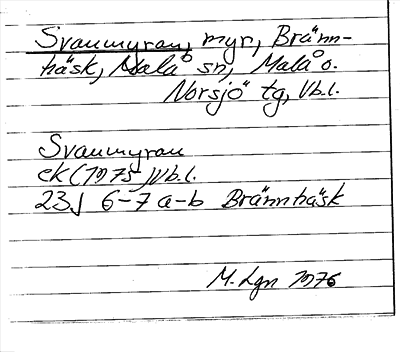 Svanmyran, myr, Bränn-
träsk, Malå sn, Malå o.
Norsjö tg, Vb.l.
Svanmyran
ek (1975) Vb.l.
23J 6-7 a-b Brännträsk
M. Lgn 1976